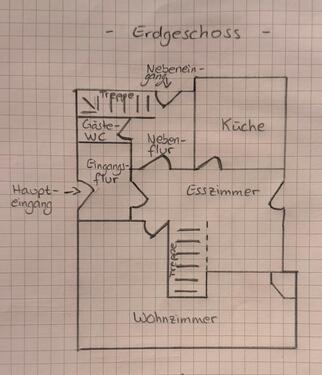 - Erdgeschoss -
Nebenein-
gang
Treppe
Gäste-
WC
Neben-
flur
Küche
Eingangs-
flur
Haupt-
eingang
Esszimmer
Treppe
Wohnzimmer